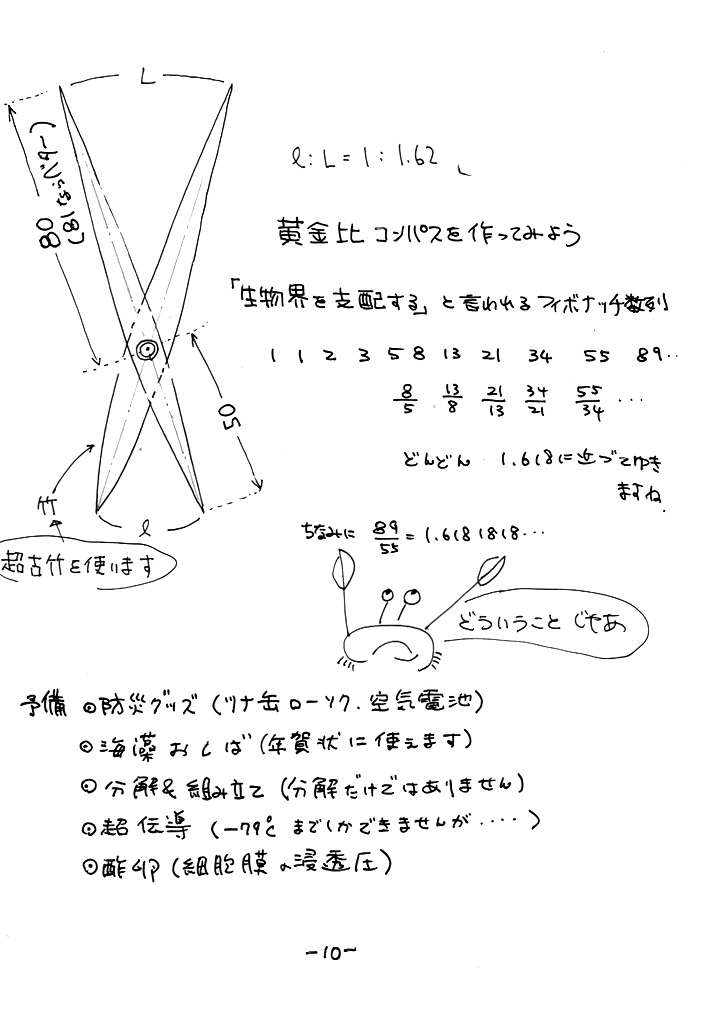 L
(81ぐらいかなー)
80
ℓ:L=1:1.62
黄金比コンパスを作ってみよう
「生物界を支配する」と言われるフィボナッチ数列
1 1 2 3 5 8 13 21 34 55 89‥
8/5 13/8 21/13 34/21 55/34 ‥‥
50
どんどん 1.618に近づてゆき
ますね.
竹
ℓ
超古竹を使います
ちなみに 89/55=1.6181818‥‥
どういうことじゃあ
予備 ◎防災グッズ(ツナ缶ローソク.空気電池)
◎海藻おしば(年賀状に使えます)
◎分解&組み立て(分解だけではありません)
◎超伝導(-79℃までしかできませんが‥‥)
◎酢卵(細胞膜の浸透圧)
-10-